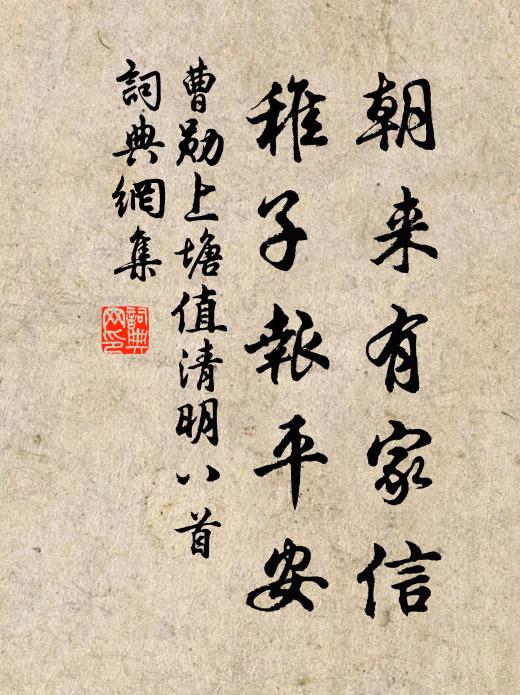 朝来有家信
稚子報平安
曹勛上塘值清明八首
詞典網集
詞典
网印